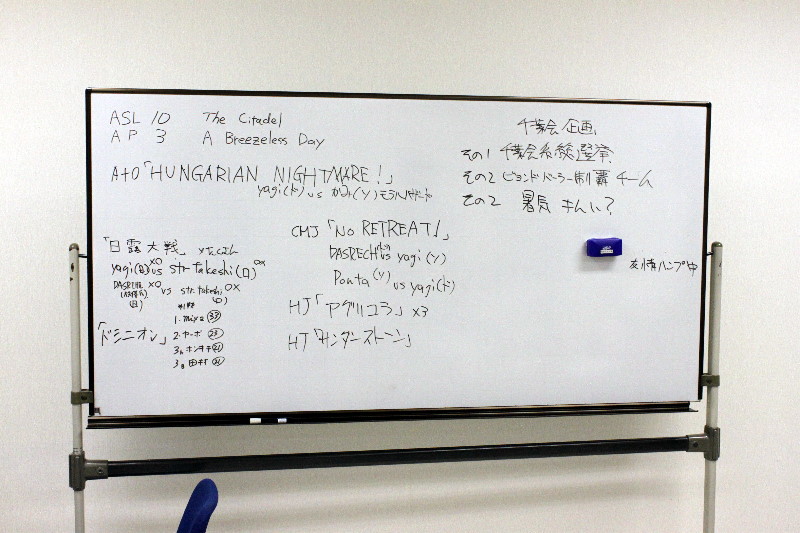 ASL 10 The Citadel
AP 3 A Breezeless Day
AtO「HUNGARIAN NIGHTMARE!」
yagi(ド) vs かみ(ソ)
「日露大戦」
yagi(日) XO vs str takeshi(ロ) OX
XO vs str takeshi OX
(日) (ロ)
「ドミニオン」
1. miya 33
2. ヤーボ 23
3. ホンチキ 21
3. 田村 21
CMJ「No RETREAT!」
DASREICH vs yagi (ソ)
Ponta (ソ) vs yagi(ド)
HJ「アグリコラ」x3
HJ「サンダーストーン」
千葉会 企画
その1 千葉会系総選挙
その2 ビヨンドバーラー制覇 チーム
その2 署長 さんい?
友情ハンプ中